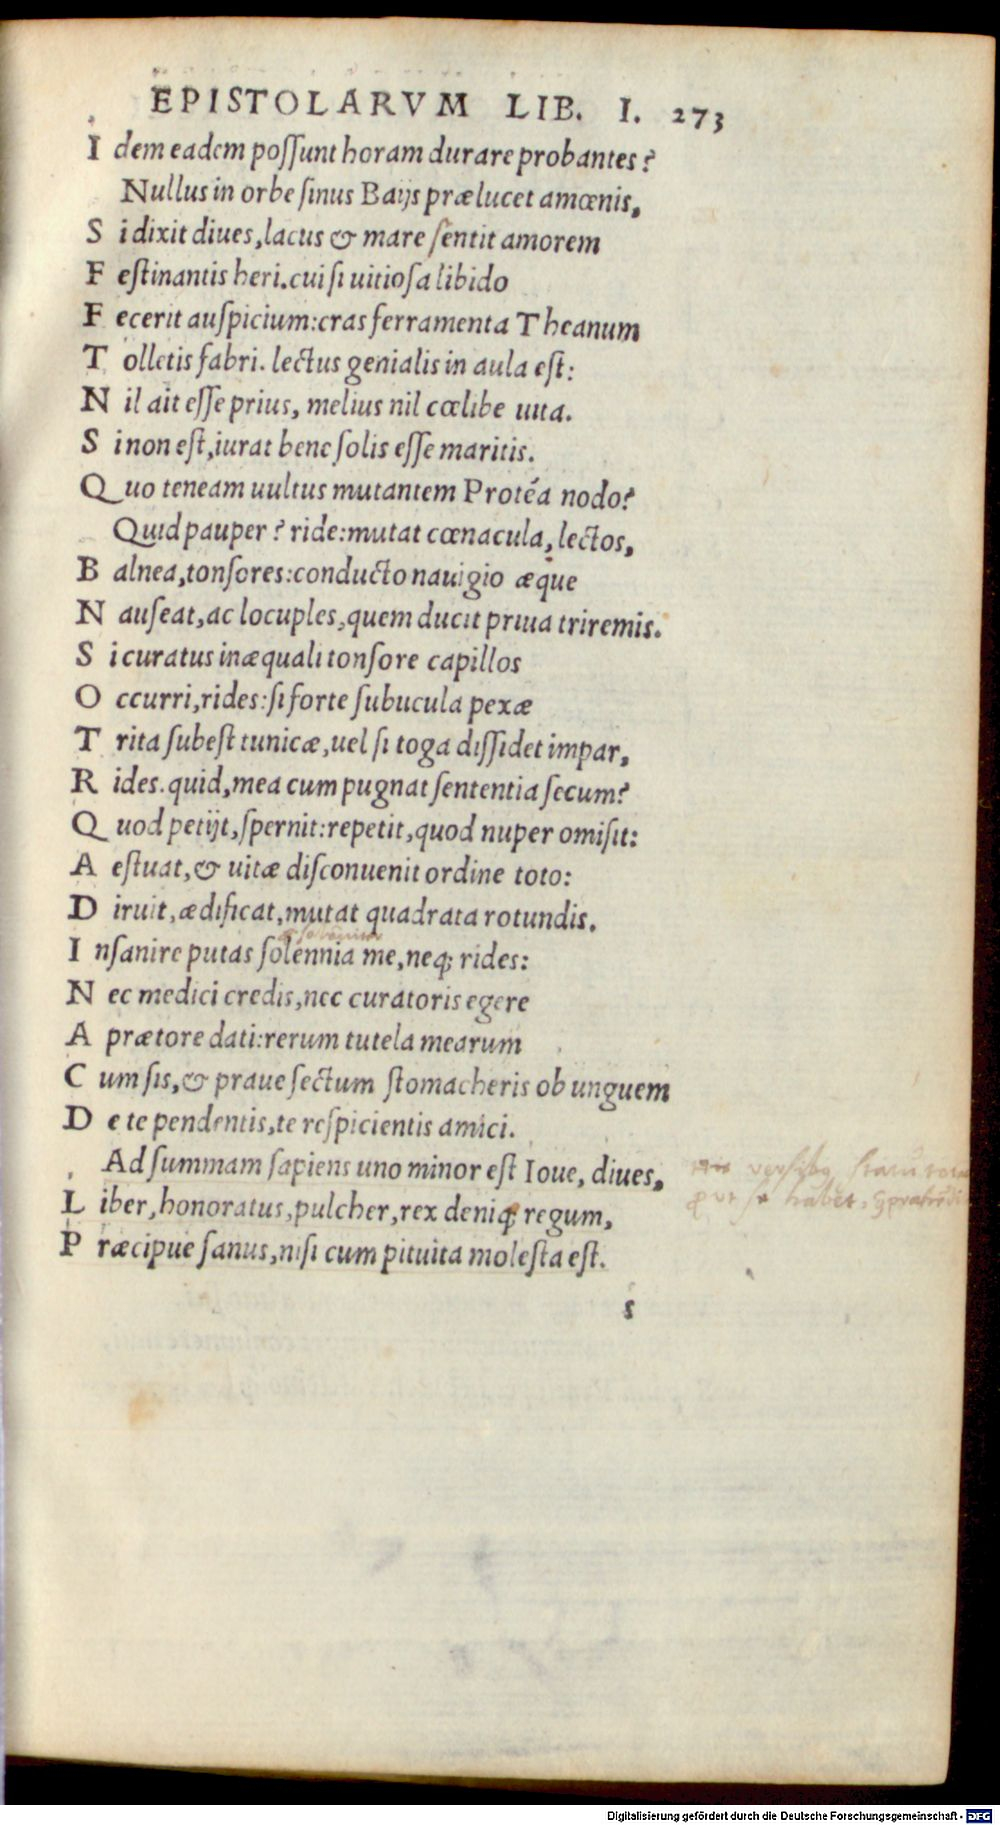 EPISTOLARVM LIB. I. 273
I dem eadem poſſunt horam durare probantes?
Nullus in orbe ſinus Baijs prælucet amœnis,
S i dixit diues, lacus & mare ſentit amorem
F eſtinantis heri. cui ſi uitioſa libido
F ecerit auſpicium: cras ferramenta Theanum
T olletis fabri. lectus genialis in aula eſt:
N il ait eſſe prius, melius nil cœlibe uita.
S i non eſt, iurat bene ſolis eſſe maritis.
Q uo teneam uultus mutantem Protéa nodo?
Quid pauper? ride: mutat cœnacula, lectos,
B alnea, tonſores: conducto nauigio æque
N auſeat, ac locuples, quem ducit priua triremis.
S i curatus inæquali tonſore capillos
O ccurri, rides: ſi forte ſubucula pexæ
T rita ſubeſt tunicæ, uel ſi toga diſſidet impar,
R ides. quid, mea cum pugnat ſententia ſecum?
Q uod petijt, ſpernit: repetit, quod nuper omiſit:
A eſtuat, & uitæ diſconuenit ordine toto:
D iruit, ædificat, mutat quadrata rotundis.
I nſanire putas ſolennia me, neq; rides:
N ec medici credis, nec curatoris egere
A prætore dati: rerum tutela mearum
C um ſis, & praue ſectum ſtomacheris ob unguem
D e te pendentis, te reſpicientis amici.
Ad ſummam ſapiens uno minor eſt Ioue, diues,
L iber, honoratus, pulcher, rex deniq; regum,
P ræcipue ſanus, niſi cum pituita moleſta eſt.
s
Digitalisierung gefördert durch die Deutsche Forschungsgemeinschaft - DFG